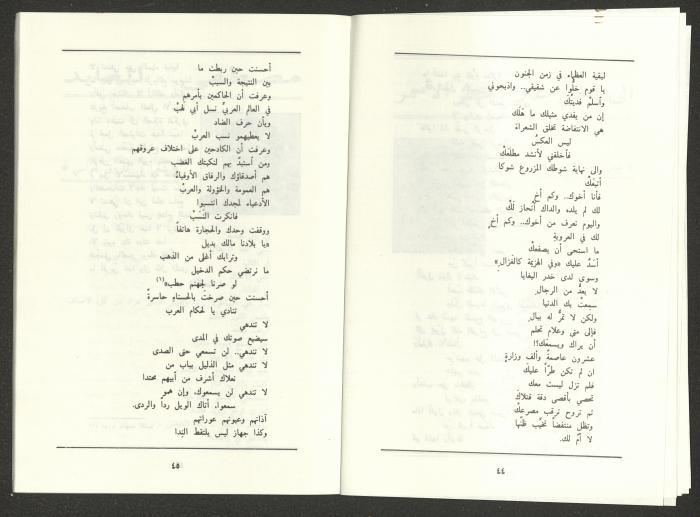 لبقية العظماء في زمن الجنون
يا قوم خلُّوا عن شقيقي.. واذبحوني
وأسلمْ فديتُك
إن من يفدي مثيلك ما هَلَك
هي الانتفاضة تخلق الشعراءَ
ليس العكسُ
فأخلقني لأنشد مطلعَكْ
والى نهاية شوطك المزروع شوكا
أتبعَكْ
فأنا أخوك.. وكم أخ
لك لم يلده والداك أنحاز لَكْ
واليوم نعرف من أخوك.. وكم أخٍ
لك في العروبةِ
ما استحى أن يصفعكْ
أسَدٌ عليك «وفي الهزيمة كالغزال»
وسوى لدى خدر البغايا
لا يعدُّ من الرجالِ
سمعتْ بك الدنيا
ولكن لا تمرُّ له ببالِ
فإلى متى وعلام تحلم
أن يراك ويسمعَك؟!
عشرون عاصمةً وألف وزارةٍ
ان لم تكن طرّاً عليك
فلم تزل ليست معك
تحصي بأقصى دقة قتلاكَ
ثم تروح ترقب مصرعكْ
وتظل منتفضاً تخيِّب ظنَّها
لا أمّ لك.
٤٤
أحسنت حين ربطت ما
بين النتيجة والسببْ
وعرفت أن الحاكمين بأمرهم
في العالم العربيِّ نسل أبي لهبْ
وبأن حرف الضاد
لا يعطيهمو نسب العربْ
وعرفت أن الكادحين على اختلاف عروقهم
ومن أستبدّ بهم لنكبتك الغضب
هم أصدقاؤك والرفاق الأوفياءُ
هم العمومة والخؤولة والعربْ
الأدعياء لمجدك انتسبوا
فانكرت النَّسَبْ
ووقفت وحدك والحجارة هاتفاً
«يا بلادنا مالك بديل
وترابك أغلى من الذهب
ما نرتضي حكم الدخيل
لو صرنا لجهنم حطب»(٦)
أحسنت حين صرخت بالحسناءِ حاسرةً
تنادي يا لحكام العرب
لا تندهي
سيضيع صوتك في المدى
لا تندهي.. لن تسمعي حتى الصدى
لا تندهي مثل الذليل بباب من
نعلاك أشرف من أبيهم محتدا
لا تندهي لن يسمعوك، وإن همو
سمعوا، أتاك الويل رداً والردى.
آذانهم وعيونهم عوراتهم
وكذا جهاز ليس يلتقط النِدا
٤٥